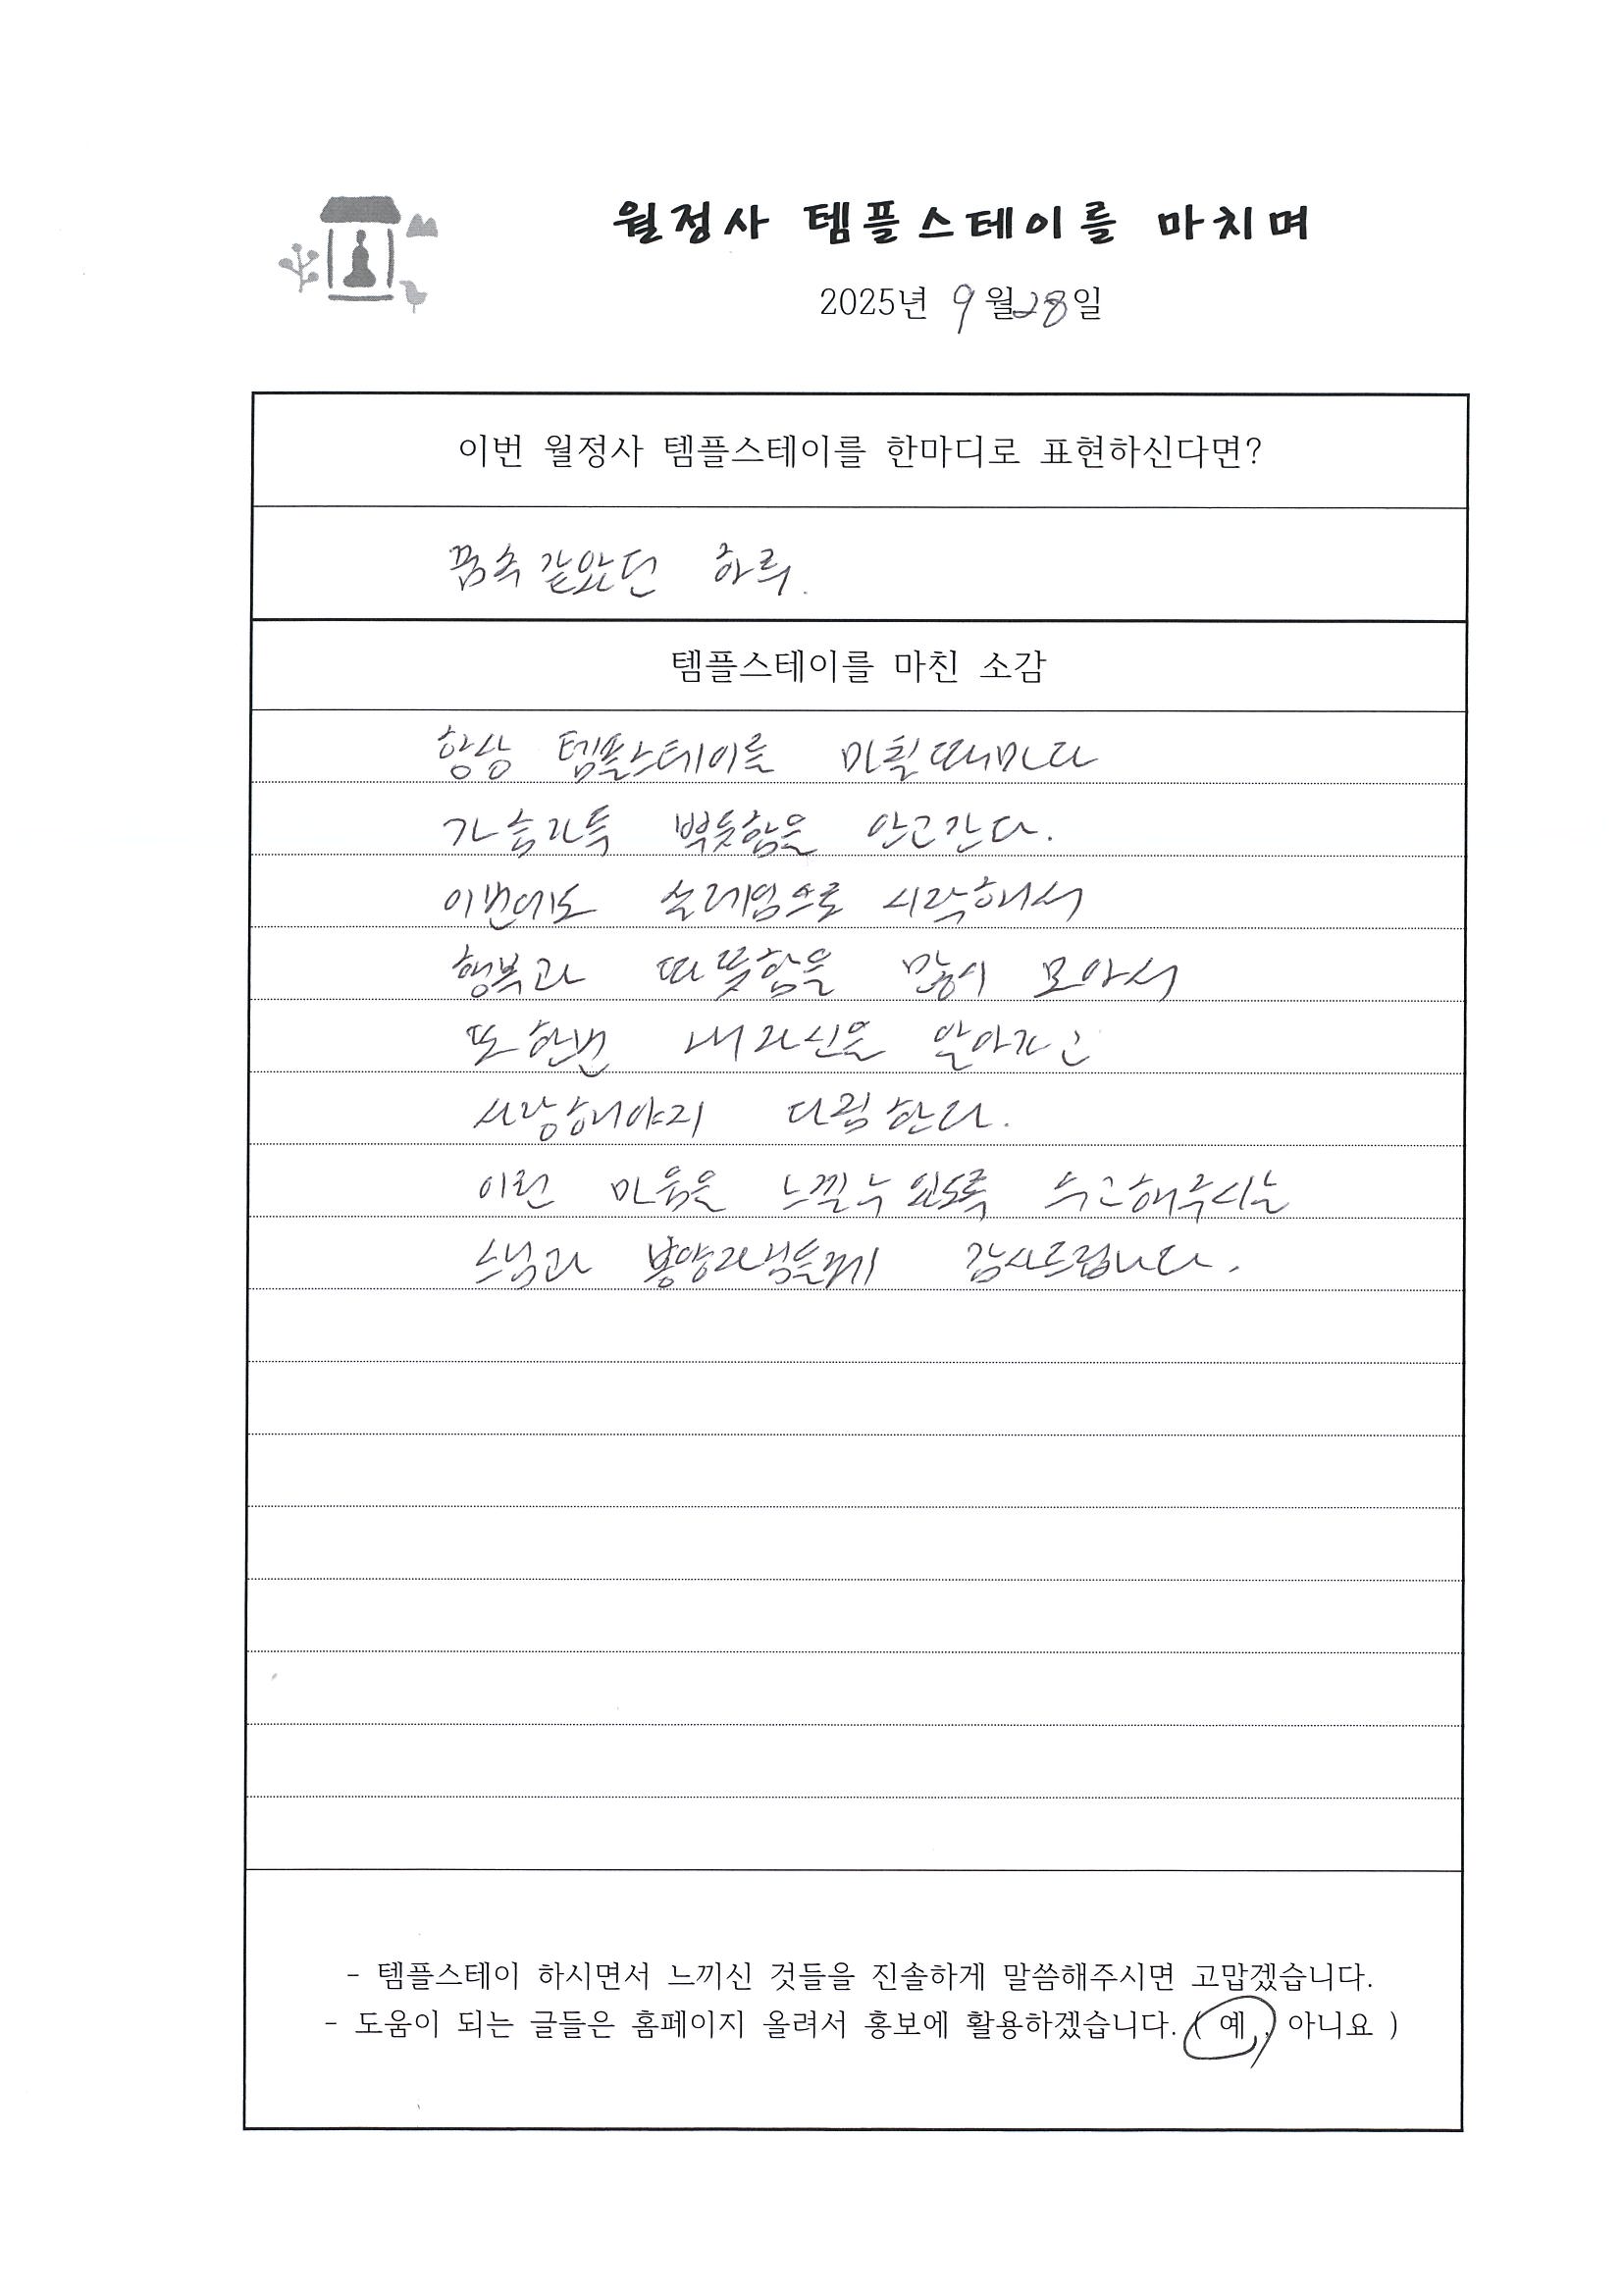 월정사 템플스테이를 마치며
2025년 9월 28일
이번 월정사 템플스테이를 한마디로 표현하신다면?
꿈속 같았던 하루.
템플스테이를 마친 소감
항상 템플스테이를 마칠때마다
가슴가득 뿌듯함을 안고간다.
이번에도 설레임으로 시작해서
행복과 따뜻함을 많이 모아서
또 한번 내 자신을 알아가고
사랑해야지 다짐한다.
이런 마음을 느낄수 있도록 수고해주시는
스님과 봉양자님들께 감사드립니다.
- 템플스테이 하시면서 느끼신 것들을 진솔하게 말씀해주시면 고맙겠습니다.
- 도움이 되는 글들은 홈페이지 올려서 홍보에 활용하겠습니다. ( 예 , 아니요 )